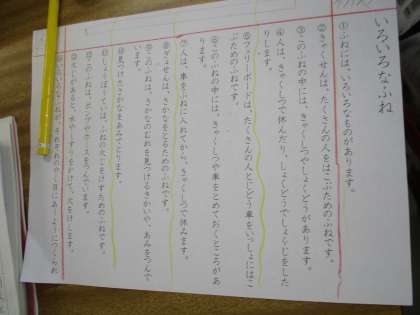 いろいろなふね
①ふねには、いろいろなものがあります。
②きゃくせんは、たくさんの人をはこぶためのふねです。
③このふねの中には、きゃくしつやしょくどうがあります。
④人は、きゃくしつで休んだり、しょくどうでしょくじをした
りします。
⑤フェリーボートは、たくさんの人とじどう車をいっしょにはこ
ぶためのふねです。
⑥このふねの中には、きゃくしつや車をとめておくところがあ
ります。
⑦人は、車をふねに入れてから、きゃくしつで休みます。
⑧ぎょせんは、さかなをとるためのふねです。
⑨このふねは、さかなのむれを見つけるきかいや、あみをつんで
います。
⑩見つけたさかなをあみでとります。
⑪しょうぼうていは、ふねの火じをけすためのふねです。
⑫このふねは、ポンプやホースをつんでいます。
⑬火じがあると、水やくすりをかけて、火をけします。
⑭いろいろなふねが、それぞれのやく目にあうようにつくられ